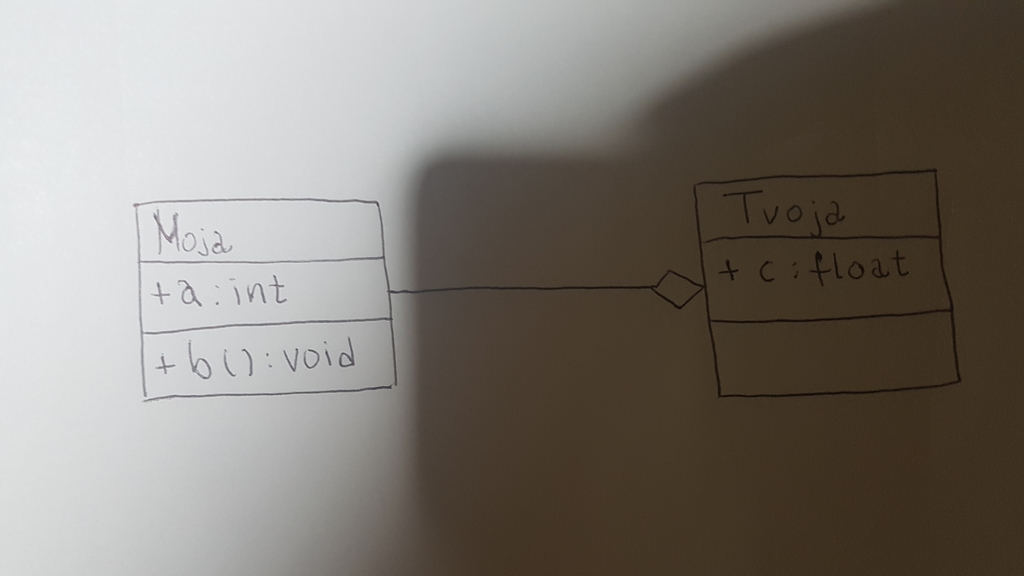 Moja
+a:int
+b():void
Tvoja
+ c:float